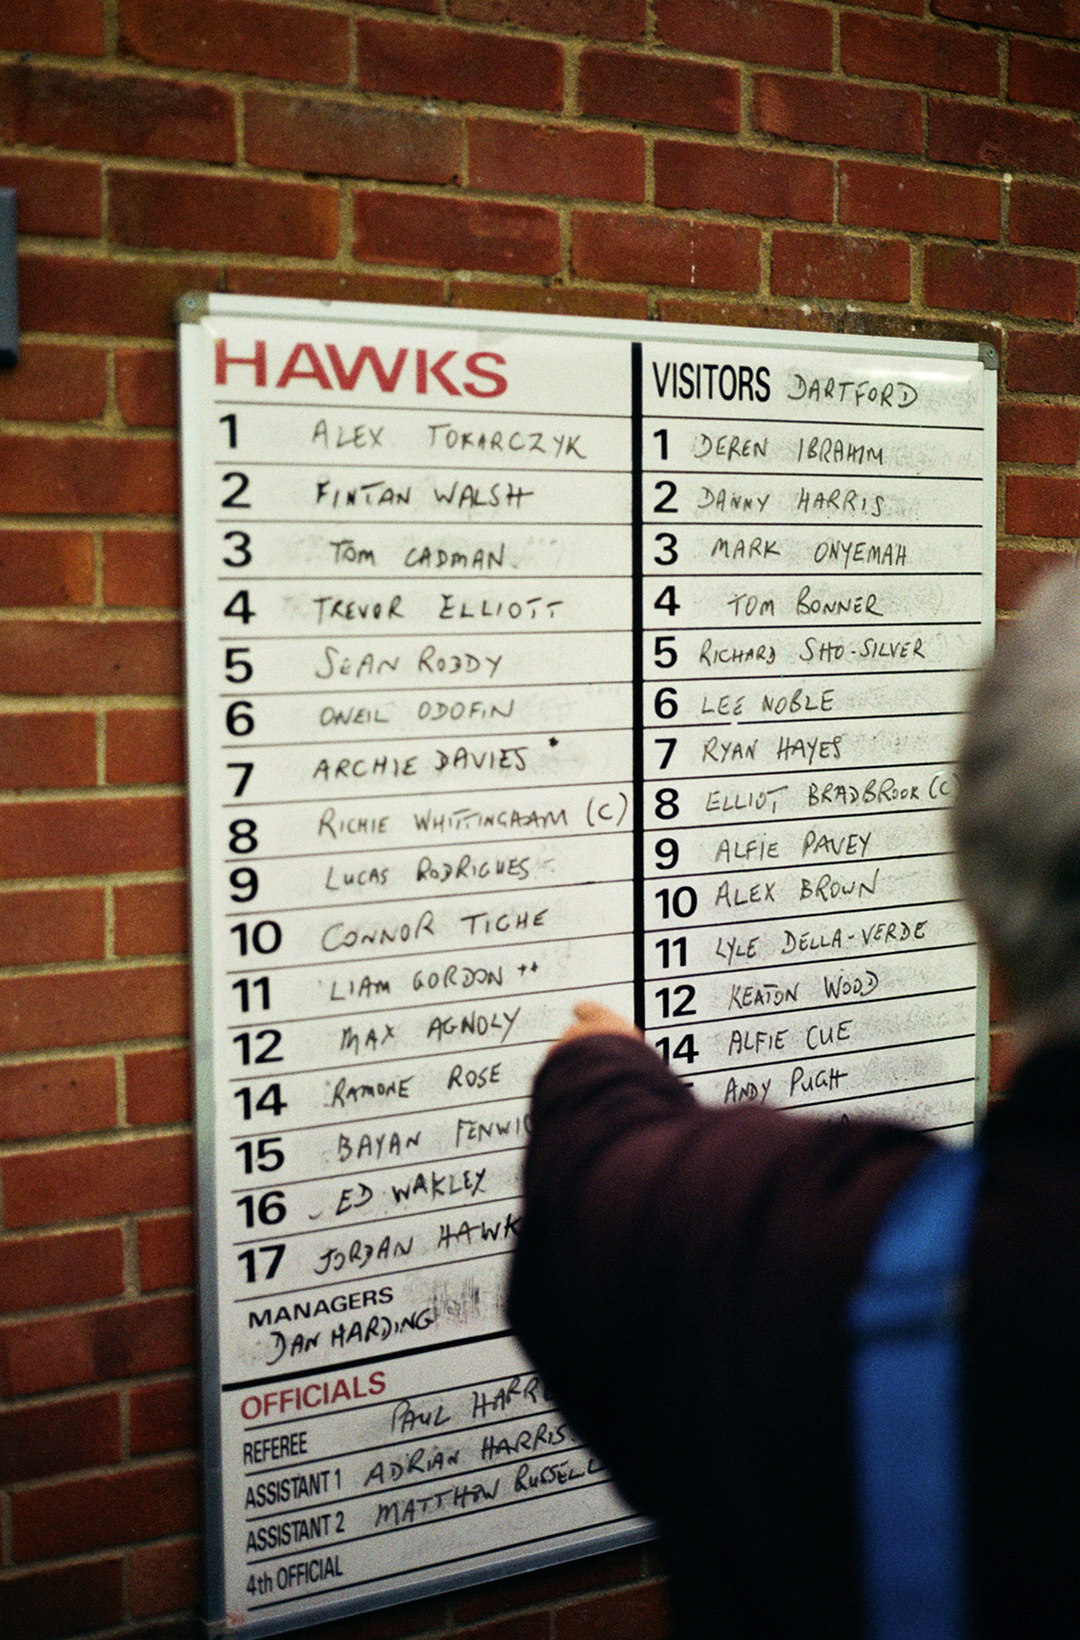 HAWKS
1 ALEX TOKARCZYK
2 FINTAN WALSH
3 TOM CADMAN
4 TREVOR ELLIOTT
5 SEAN RODDY
6 ONEIL ODOFIN
7 ARCHIE DAVIES *
8 RICHIE WHITTINGHAM (C)
9 LUCAS RODRIGUES
10 CONNOR TIGHE
11 LIAM GORDON **
12 MAX AGNOLY
14 RAMONE ROSE
15 BAYAN
16 ED WAKLEY
17 JORDAN
MANAGERS
DAN HARDING
OFFICIALS
REFEREE PAUL
ASSISTANT 1 ADRIAN HARRIS
ASSISTANT 2 MATTHEW RUSSELL
4th OFFICIAL
VISITORS DARTFORD
1 DEREN IBRAHIM
2 DANNY HARRIS
3 MARK ONYEMAH
4 TOM BONNER
5 RICHARD SHO-SILVER
6 LEE NOBLE
7 RYAN HAYES
8 ELLIOT BRADBROOK (C
9 ALFIE PAVEY
10 ALEX BROWN
11 LYLE DELLA-VERDE
12 KEATON WOOD
14 ALFIE CUE
ANDY PUGH